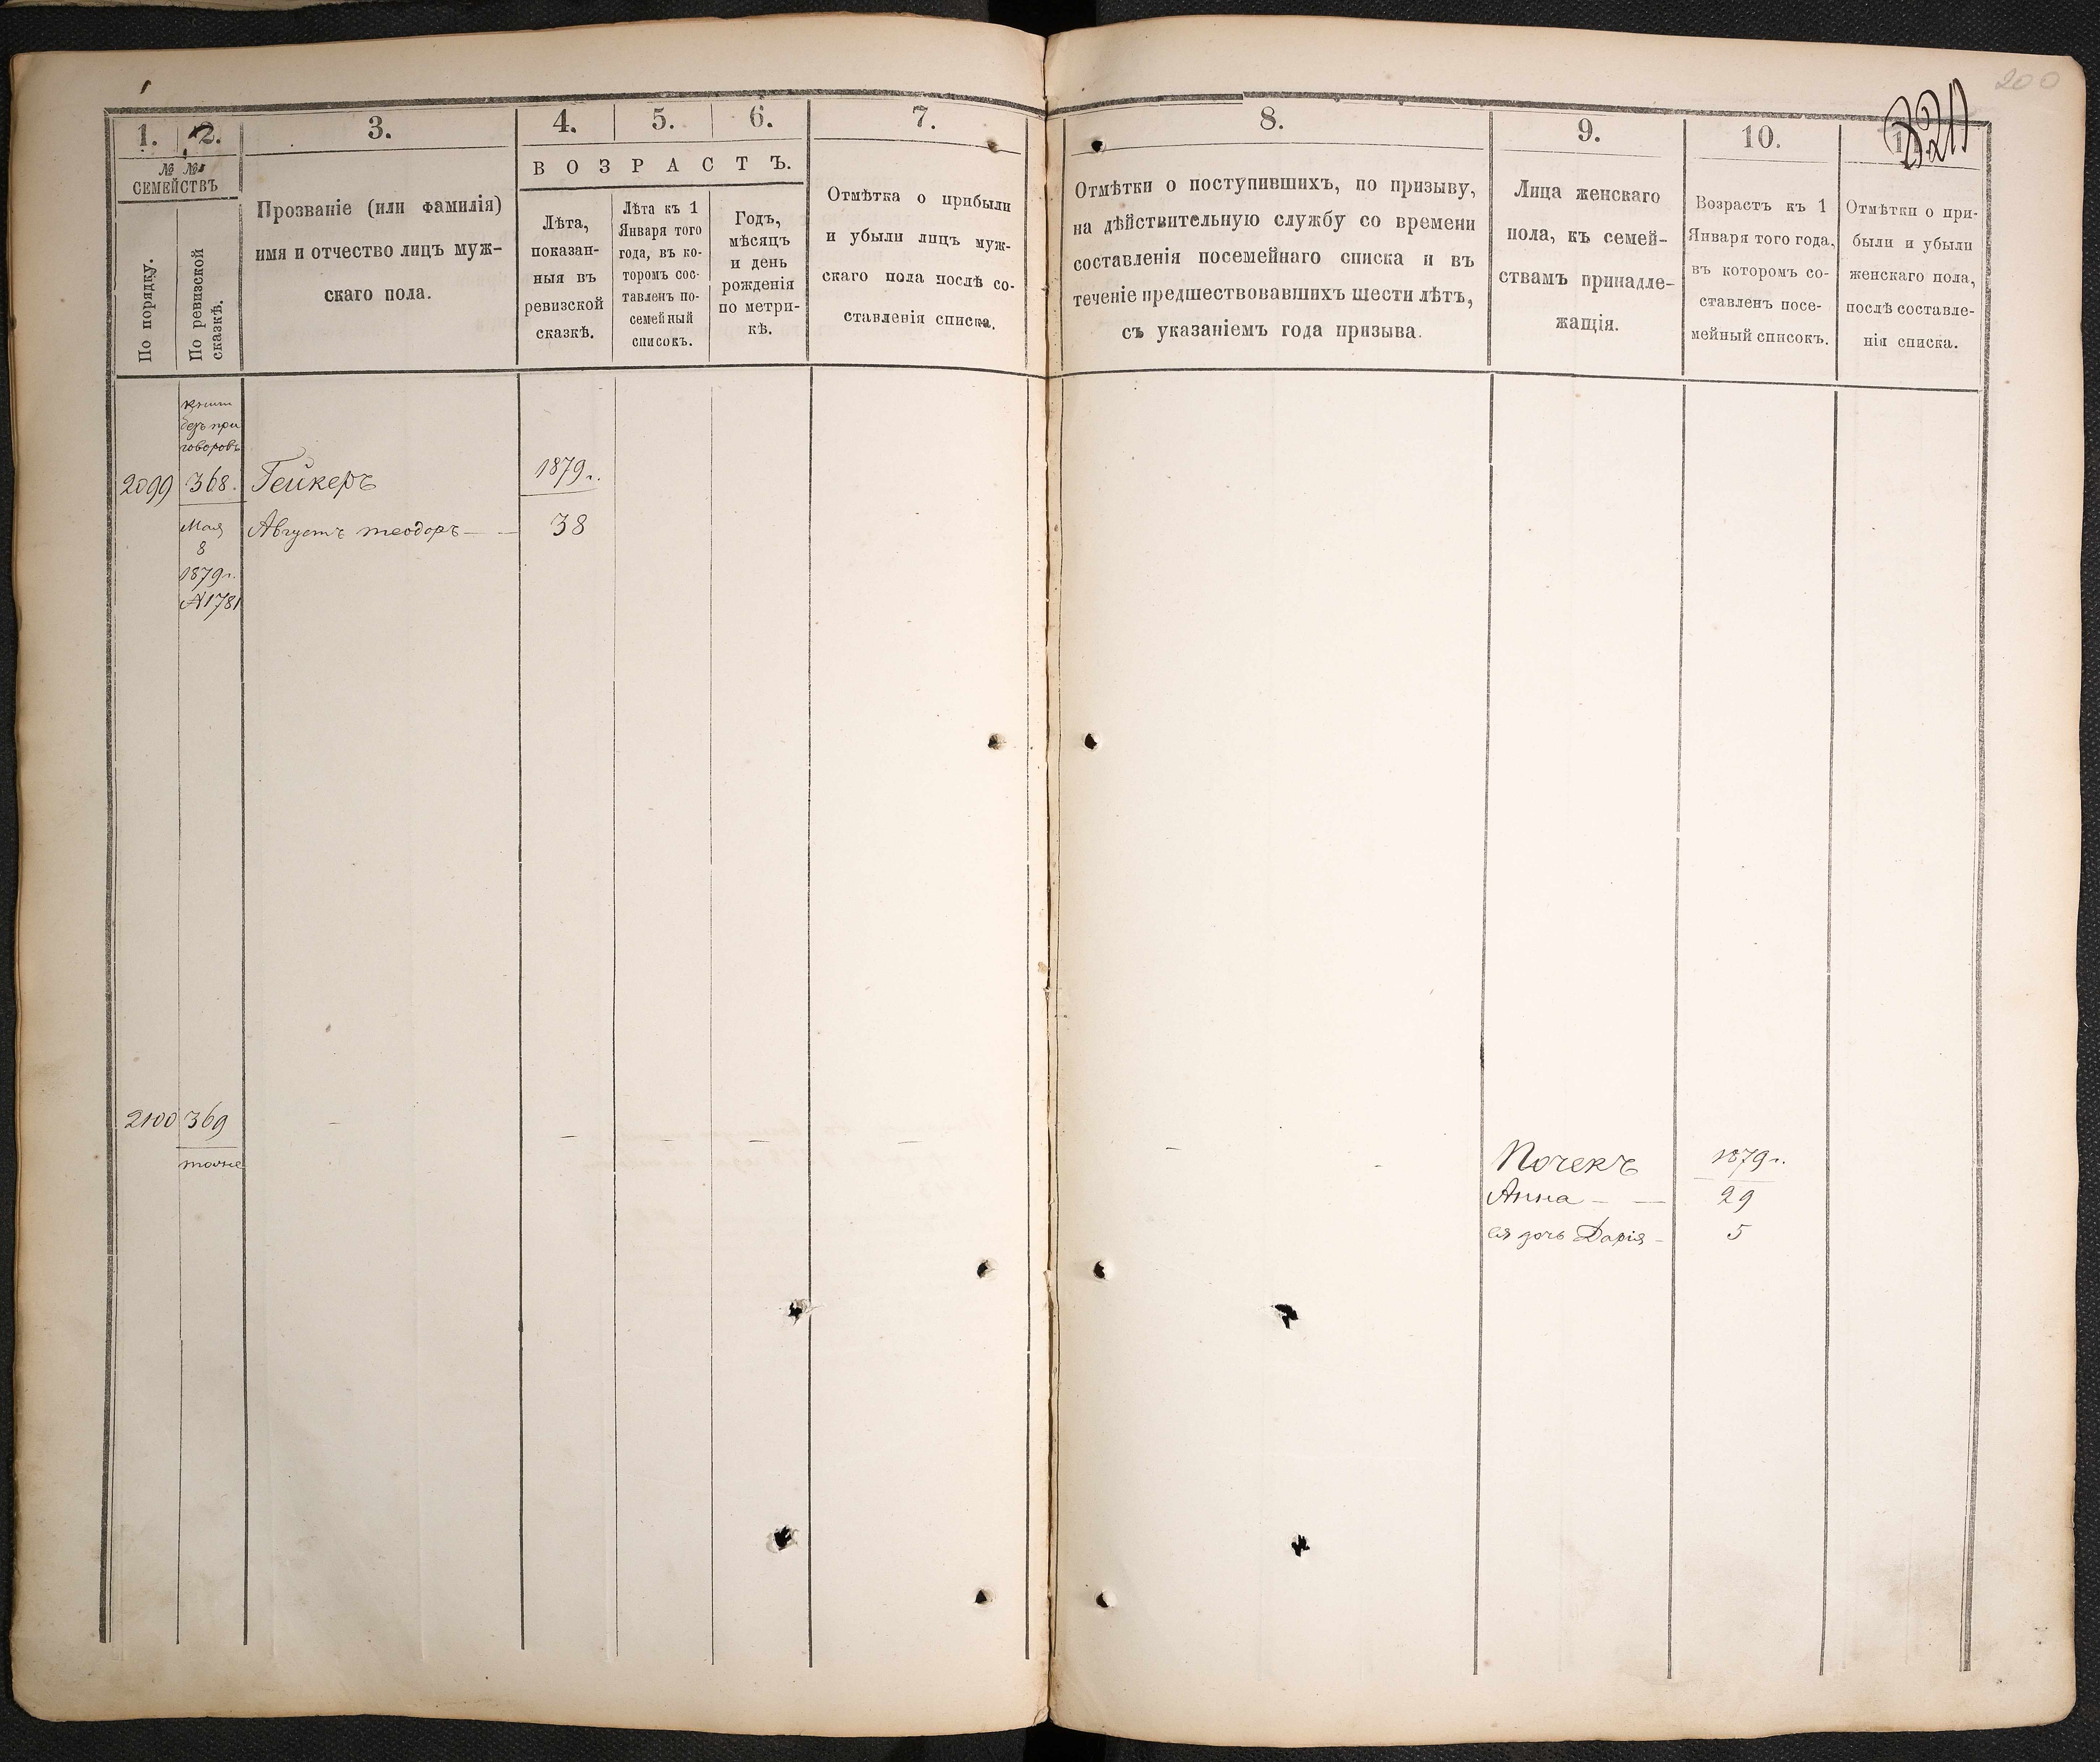 200
321
1.
2.
3.
4.
5.
6.
7.
8.
9.
10.
№ №
СЕМЕЙСТВЪ
По порядку.
По ревизской
сказкѣ.
Прозваніе (или фамилія)
имя и отчество лицъ муж-
скаго пола.
ВОЗРАСТЪ.
Лѣта,
показан-
ныя въ
ревизской
сказкѣ.
Лѣта къ 1
Января того
года, въ ко-
торомъ сос-
тавленъ по-
семейный
списокъ.
Годъ,
мѣсяцъ
и день
рожденія
по метри-
кѣ.
Отмѣтка о прибыли
и убыли лицъ муж-
скаго пола послѣ со-
ставленія списка.
Отмѣтки о поступившихъ, по призыву,
на дѣйствительную службу со времени
составленія посемейнаго списка и въ
теченіе предшествовавшихъ шести лѣтъ,
съ указаніемъ года призыва.
Лица женскаго
пола, къ семей-
ствамъ принадле-
жащія.
Возрастъ къ 1
Января того года,
въ которомъ со-
ставленъ посе-
мейный списокъ.
Отмѣтки о при-
были и убыли
женскаго пола,
послѣ составле-
нія списка.
безъ при
говоровъ
2099 368. Гейкеръ 1879 г.
Августъ теодоръ — — 38
Мая
8
1879 г.
№ 1781
2100 369
тоже
Почекъ 1879 г.
Анна — — 29
ея дочь Дарія — 5